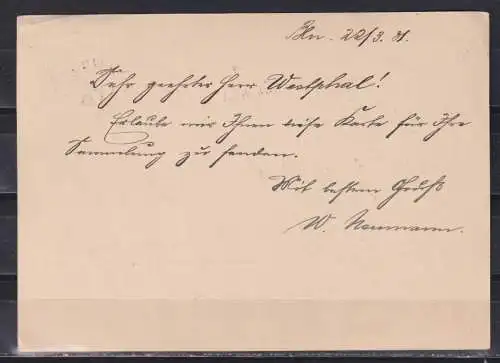 Bln. 22/3. 31.
Sehr geehrter Herr Westphal!
Erlaube mir Ihnen diese Karte für Ihre
Sammlung zu senden.
Mit bestem Gruß
W. Neumann.